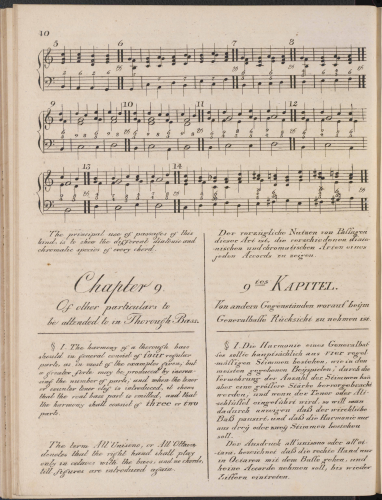 40
5 6 7 8
9 10 11 12
13 14
The principal use of passages of this
kind, is to shew the different diatonic and
chromatic species of every chord.
Chapter 9.
Of other particulars to
be attended to in Thorough Bass.
§ 1. The harmony of a thorough bass
should in general consist of four regular
parts, as in most of the examples given, but
a greater force may be produced by increa-
sing the number of parts, and when the tenor
or counter tenor clef is introduced, it shews
that the real bass part is omitted, and that
the harmony shall consist of three or two
parts.
The term All Unisono, or All Ottava
denotes that the right hand shall play
only in octaves with the bass, and no chords,
till figures are introduced again.
Der vorzügliche Nutzen von Passagen
dieser Art ist, die verschiedenen diato-
nischen und chromatischen Arten eines
jeden Accords zu zeigen.
9tes KAPITEL.
Von andern Gegenständen worauf beÿm
Generalbasse Rücksicht zu nehmen ist.
§ 1. Die Harmonie eines Generalbas-
ses sollte hauptsächlich aus vier regel-
mässigen Stimmen bestehen, wie in den
meisten gegebenen Beÿspielen; durch die
Vermehrung der Anzahl der Stimmen kan
aber eine größere Stärke hervorgebracht
werden, und wenn der Tenor oder Alt-
schlüssel eingeführt wird, so will man
dadurch anzeigen daß der wirkliche
Baß pausirt, und daß die Harmonie nur
aus dreÿ oder zweÿ Stimmen bestehen
soll.
Der Ausdruck all unisono oder all ot-
tava, bezeichnet daß die rechte Hand nur
in Octaven mit dem Basse gehen, und
keine Accorde nehmen soll, bis wieder
Ziffern eintreten.